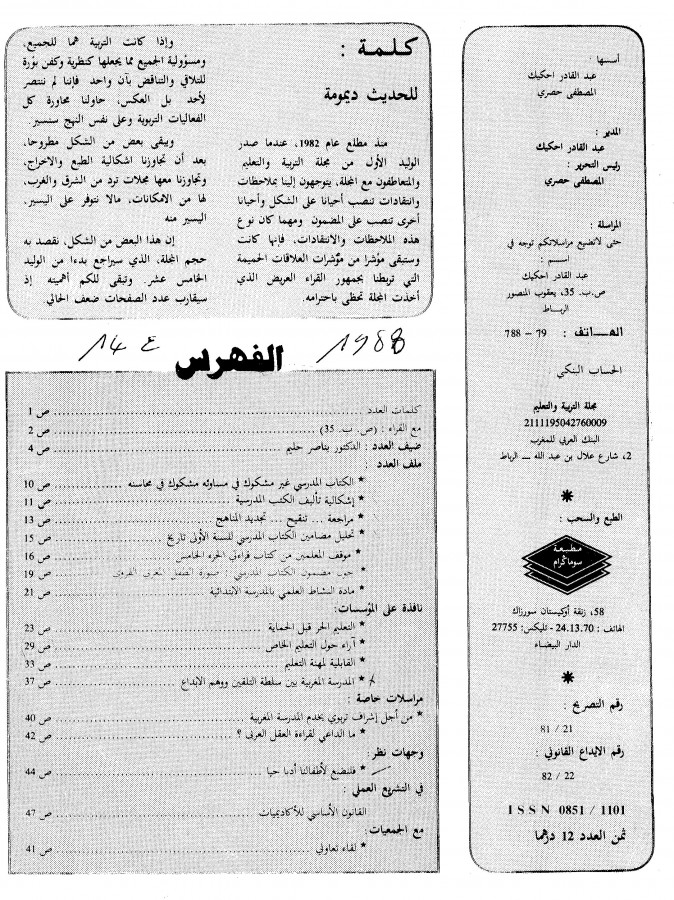 كلمة :
للحديث ديمومة
منذ مطلع عام 1982، عندما صدر
الوليد الأول من مجلة التربية والتعليم
والمتعاطفون مع المجلة، يتوجهون إلينا بملاحظات
وانتقادات تنصب أحيانا على الشكل وأحيانا
أخرى تنصب على المضمون ومهما كان نوع
هذه الملاحظات والانتقادات، فإنها كانت
وستبقى مؤشرا من مؤشرات العلاقات الحميمة
التي تربطنا بجمهور القراء العريض الذي
أخذت المجلة تحظى باحترامه.
وإذا كانت التربية هما للجميع،
ومسؤولية الجميع مما يجعلها كنظرية وكفن بؤرة
للتلاقي والتناقض بآن واحد فإننا لم ننتصر
لأحد بل العكس، حاولنا محاورة كل
الفعاليات التربوية وعلى نفس النهج سنسير.
ويبقى بعض من الشكل مطروحا،
بعد أن تجاوزنا اشكالية الطبع والاخراج،
وتجاوزنا معها مجلات ترد من الشرق والغرب،
لها من الامكانات، مالا نتوفر على اليسير،
اليسير منه
إن هذا البعض من الشكل، نقصد به
حجم المجلة، الذي سيراجع بدءا من الوليد
الخامس عشر. وتبقى للكم أهميته إذ
سيقارب عدد الصفحات ضعف الحالي
أسسها :
عبد القادر احكيك
المصطفى حصري
المدير :
عبد القادر احكيك
رئيس التحرير :
المصطفى حصري
المراسلة :
حتى لاتضيع مراسلاتكم توجه في
اسم :
عبد القادر احكيك
ص.ب. 35، يعقوب المنصور
الرباط
الهـاتف : 79 - 788
الحساب البنكي
مجلة التربية والتعليم
2111195042760009
البنك العربي للمغرب
2، شارع علال بن عبد الله ــ الرباط
*
الطبع والسحب :
مطبعة
سوماگرام
58، زنقة أوكيستان سورزاك
الهاتف : 24.13.70 - تليكس: 27755
الدار البيضاء
*
رقم التصريح :
81 / 21
رقم الايداع القانوني :
82 / 22
ISSN 0851 / 1101
ثمن العدد 12 درهما
1988
14 ع
الفهرس
كلمات العدد ص 1
مع القراء : (ص. ب. 35) ص 2
ضيف العدد : الدكتور بناصر حليم ص 4
ملف العدد :
* الكتاب المدرسي غير مشكوك في مساوئه مشكوك في محاسنه ص 10
* إشكالية تأليف الكتب المدرسية ص 11
* مراجعة ... تنقيح ... تجديد المناهج ص 13
* تحليل مضامين الكتاب المدرسي للسنة الأولى تاريخ ص 15
* موقف المعلمين من كتاب قراءتي الجزء الخامس ص 16
* حول مضمون الكتاب المدرسي : صورة الطفل المغربي القروي ص 19
* مادة النشاط العلمي بالمدرسة الابتدائية ص 21
نافذة على المؤسسات:
* التعليم الحر قبل الحماية ص 23
* آراء حول التعليم الخاص ص 29
* القابلية لمهنة التعليم ص 33
* المدرسة المغربية بين سلطة التلقين ووهم الابداع ص 37
مراسلات خاصة :
* من أجل إشراف تربوي يخدم المدرسة المغربية ص 40
* ما الداعي لقراءة العقل العربي ؟ ص 42
وجهات نظر :
* فلنضع لأطفالنا أدبا حيا ص 44
في التشريع العملي :
القانون الأساسي للأكاديميات ص 47
مع الجمعيات :
* لقاء تعاوني ص 41